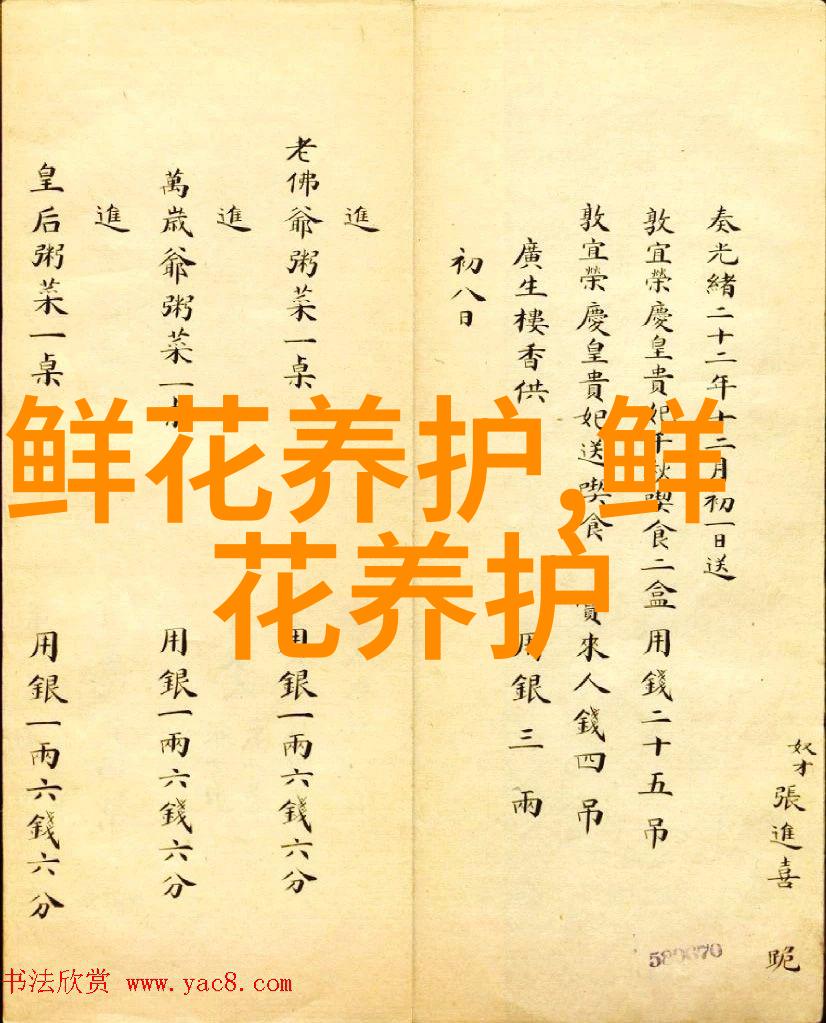 奴才張進喜 跪
奏光緒二十二年十二月初一日送
敦宜榮慶皇貴妃千秋喫食二盒用錢二十五吊
敦宜榮慶皇貴妃送喫食 賞來人錢四吊
廣生樓香供 用銀三兩
初八日
進
老佛爺粥菜一桌 用銀一兩六錢六分
進
萬歲爺粥菜一 用銀一兩六錢六分
進
皇后粥菜一桌 用銀一兩六錢六分
鲜花养护,鲜
花养护
书法欣赏 www.yac8.com